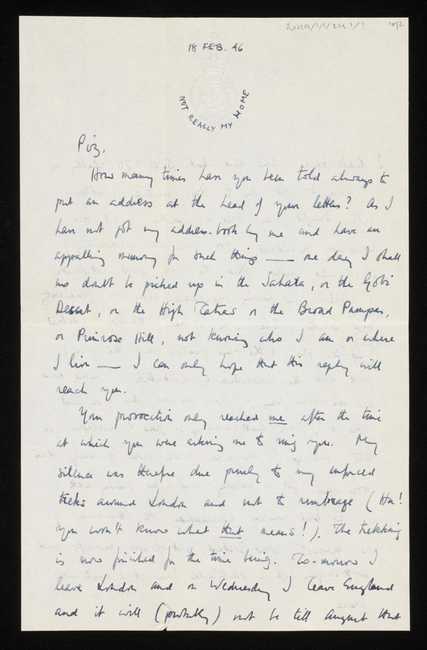 18 FEB. 46
NOT REALLY MY HOME
Pig,
How many times have you been told always to
put an address at the head of your letters? As I
have not got my address-book by me and have an
appalling memory for such things — one day I shall
no doubt be picked up in the Sahara, or the Gobi
Desert, or the High Tatras or the Broad Pampas,
or Primrose Hill, not knowing who I am or where
I live — I can only hope that this reply will
reach you.
Your provocation only reached me after the time
at which you were asking me to ring you. My
silence was therefore due purely to my enforced
treks around London and not to umbrage (Ha!
You won't know what that means!). The trekking
is now finished for the time being. To-morrow I
leave London and on Wednesday I leave England
and it will (probably) not be till August that